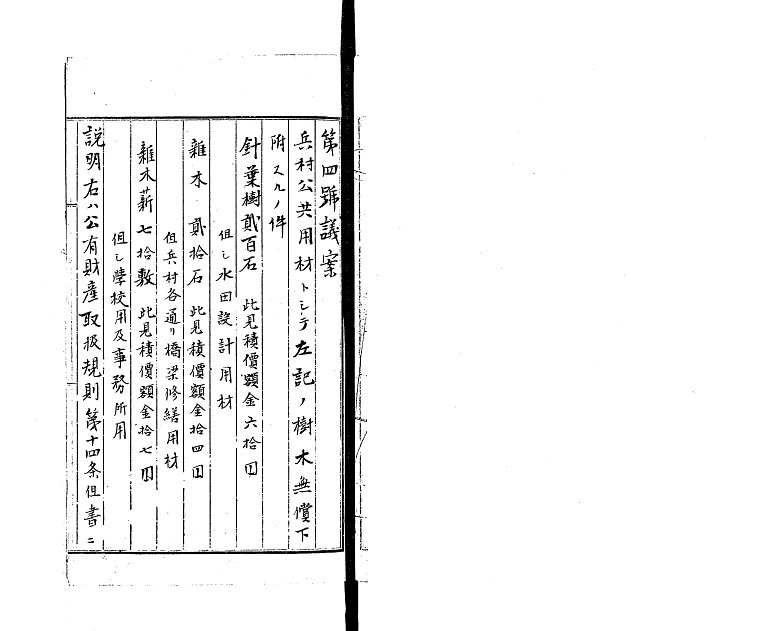 第四號議案
兵村公共用材トシテ左記ノ樹木無償下
附スルノ件
針葉樹貳百石 此見積價額金六拾円
但シ水田設計用材
雜木 貳拾石 此見積價額金拾四円
但兵村各通リ橋梁修繕用材
雜木薪七拾敷 此見積價額金拾七円
但シ學校用及事務所用
説明右ハ公有財產取扱規則第十四条但書ニ